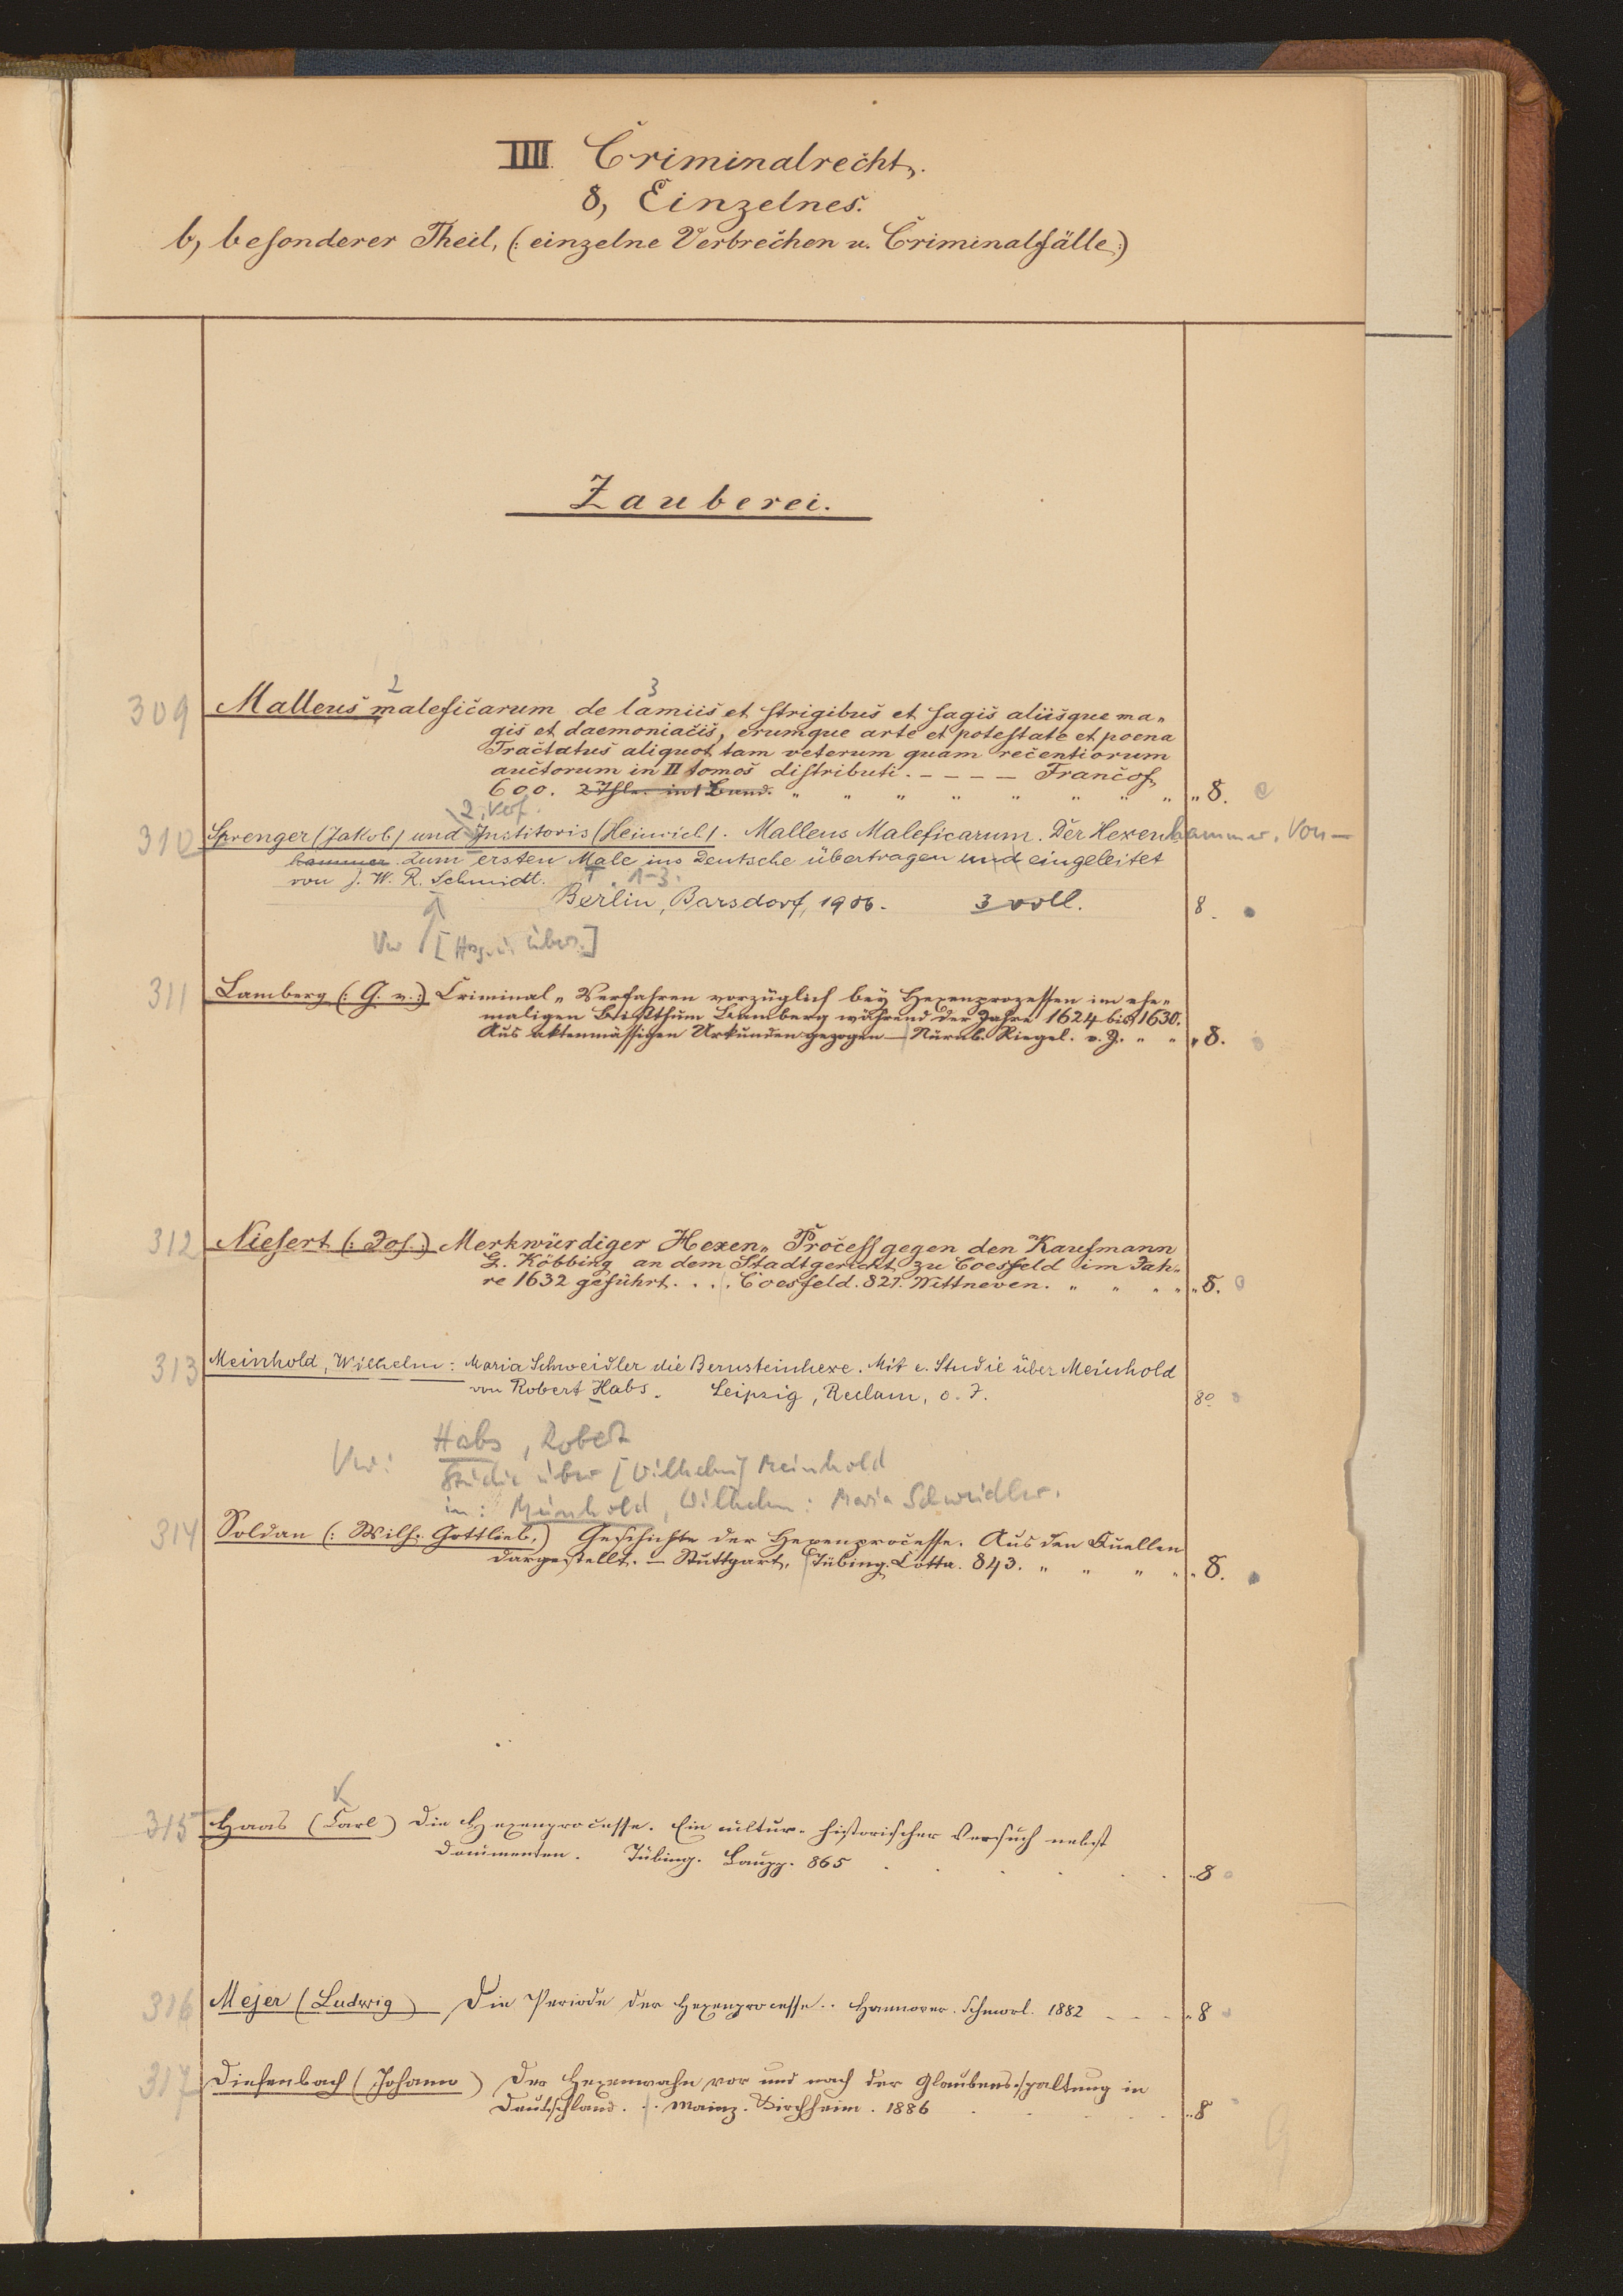 IIII. Criminalrecht.
8, Einzelnes.
b, besonderer Theil, (: einzelne Verbrechen u. Criminalfälle :)
Zauberei.
2 3
309 Malleus maleficarum de lamiis et strigibus et sagis aliisque ma„
gis et daemoniacis, erumque arte et potestate et poena
Tractatus aliquot tam veterum quam recentiorum
auctorum in II tomos distributi. – – – – Francof.
600. 2 Thle. in 1 Band. „ „ „ „ „ „ „ „ „ 8.
2. Verf.
310 Sprenger (Jakob) und Institoris (Heinrich). Malleus Maleficarum. Der Hexenhammer. Von —
hammer. Zum ersten Male ins Deutsche übertragen und eingeleitet
von J. W. R. Schmidt. T. 1-3.
Berlin, Barsdorf, 1906. 3 voll. 8.
Vw [Hrsg. u. Übers.]
311 Lamberg (: G. v. :) Criminal„ Verfahren vorzüglich bey Hexenprozessen im ehe„
maligen Bißthum Bamberg während der Jahre 1624 bis 1630.
Aus aktenmässigen Urkunden gezogen — Nürnb. Riegel. o. J. „ „ „ 8.
312 Niesert (: Jos. :) Merkwürdiger Hexen„ Process gegen den Kaufmann
G. Köbbing an dem Stadtgericht zu Coesfeld im Jah„
re 1632 geführt. . . . Coesfeld. 827. Wittneven. „ „ „ „ „ 8.
313 Meinhold, Wilhelm: Maria Schweidler die Bernsteinhexe. Mit e. Studie über Meinhold
von Robert Habs. Leipzig, Reclam, o. J. 8°
Vw: Habs, Robert
Studie über [Wilhelm] Meinhold
in: Meinhold, Wilhelm: Maria Schweidler.
314 Soldan (: Wilh. Gottlieb, ) Geschichte der Hexenprocesse. Aus den Quellen
dargestellt. — Stuttgart, Tübing. Cotta. 843. „ „ „ „ „ 8.
K
315 Haas (Carl) Die Hexenprocesse. Ein cultur-historischer Versuch nebst
Documenten. Tübing. Laupp. 865 . . . . . „ 8
316 Mejer (Ludwig) Die Periode der Hexenprocesse. . Hannover. Schmorl. 1882 . . . „ 8
317 Diefenbach (Johann) Der Hexenwahn vor und nach der Glaubensspaltung in
Deutschland. . . Mainz. Kirchheim. 1886 . . . . „ 8